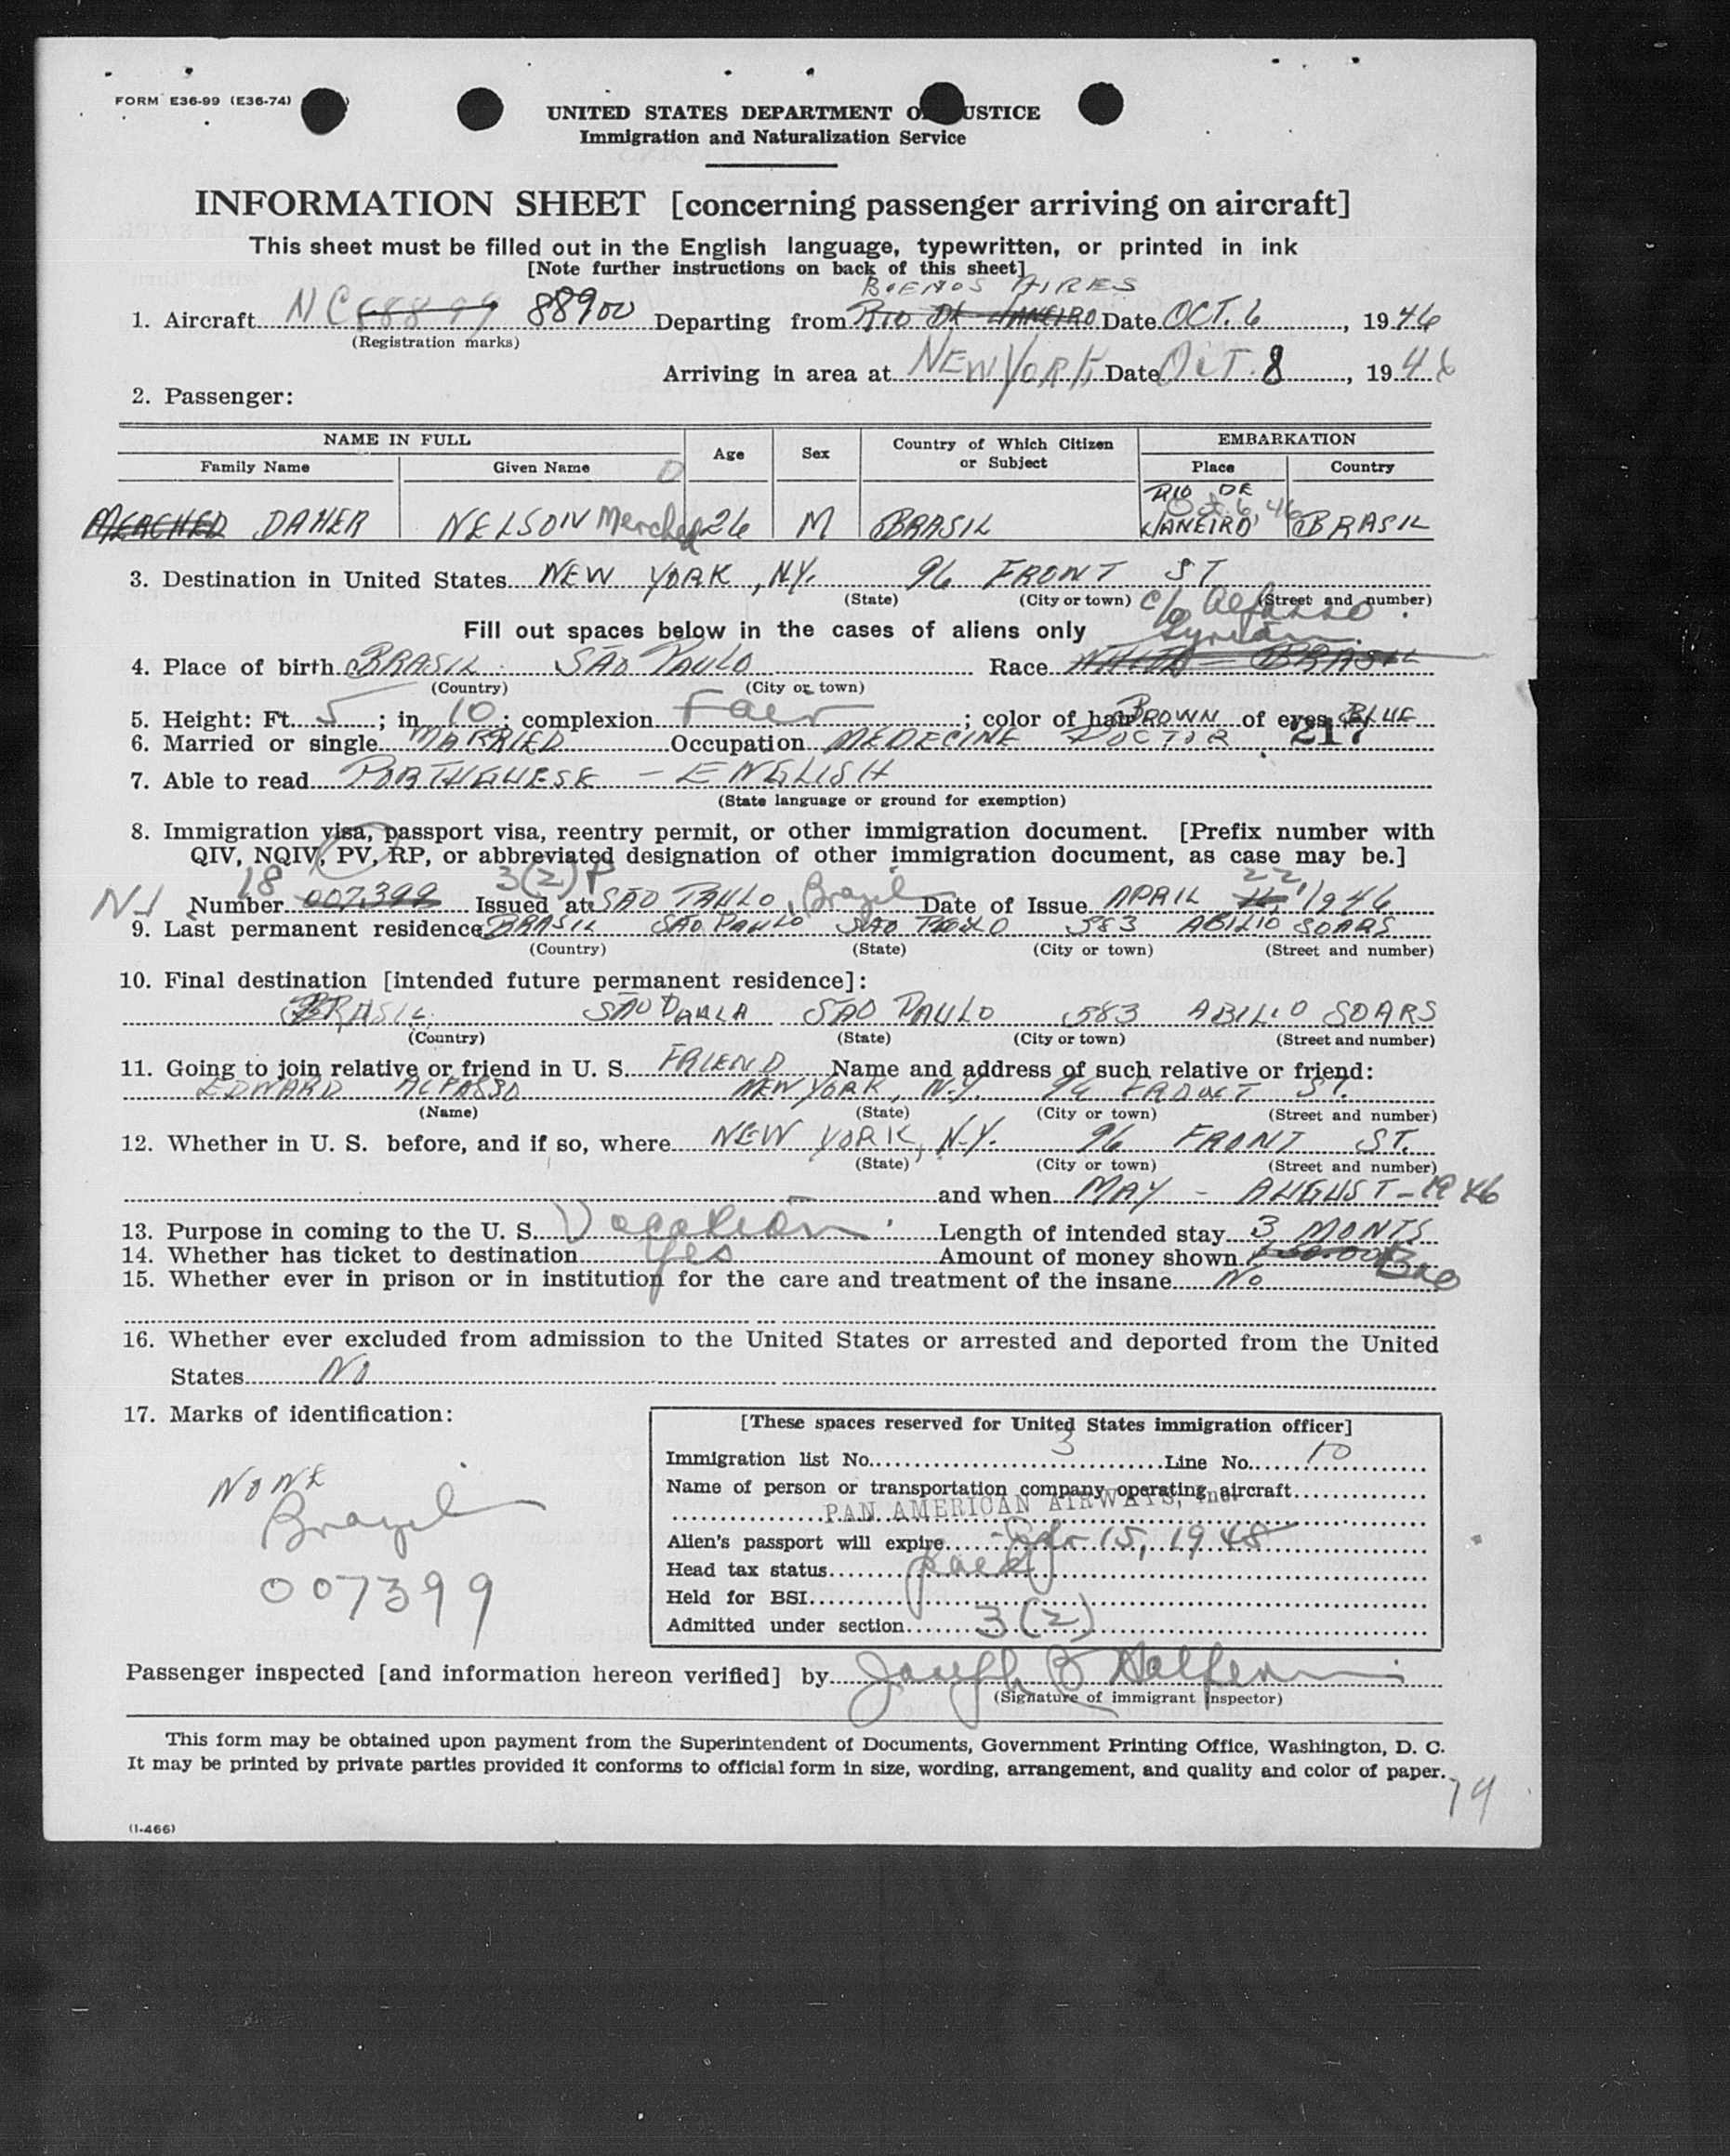 FORM E36-99 (E36-74)
UNITED STATES DEPARTMENT O USTICE
Immigration and Naturalization Service
INFORMATION SHEET [concerning passenger arriving on aircraft]
This sheet must be filled out in the English language, typewritten, or printed in ink
[Note further instructions on back of this sheet]
BUENOS AIRES
1. Aircraft NC 88899 88900 Departing from RIO DE JANEIRO Date OCT. 6, 1946
(Registration marks)
Arriving in area at NEW YORK Date OCT. 8, 1946
2. Passenger:
NAME IN FULL Age Sex Country of Which Citizen or Subject EMBARKATION
Family Name Given Name Place Country
RIO DE
Oct. 6, 46
MERCHED DAHER NELSON Merched 26 M BRASIL JANEIRO BRASIL
3. Destination in United States NEW YORK, N.Y. 96 FRONT ST
(State) (City or town) (Street and number)
c/o Alfasso
Fill out spaces below in the cases of aliens only
Syrian
4. Place of birth BRASIL SÃO PAULO Race WHITE - BRASIL
(Country) (City or town)
5. Height: Ft. 5; in. 10; complexion Fair; color of hair BROWN of eyes BLUE
6. Married or single MARRIED Occupation MEDECINE DOCTOR 217
7. Able to read PORTHGUESE - ENGLISH
(State language or ground for exemption)
8. Immigration visa, passport visa, reentry permit, or other immigration document. [Prefix number with
QIV, NQIV, PV, RP, or abbreviated designation of other immigration document, as case may be.]
18 3(2) P 22
Number 007,399 Issued at SÃO PAULO, Brazil Date of Issue APRIL 1946
9. Last permanent residence BRASIL SÃO PAULO SÃO PAULO 583 ABILIO SOARS
(Country) (State) (City or town) (Street and number)
10. Final destination [intended future permanent residence]:
BRASIL SÃO PAULA SÃO PAULO 583 ABILIO SOARS
(Country) (State) (City or town) (Street and number)
11. Going to join relative or friend in U. S. FRIEND Name and address of such relative or friend:
EDWARD ALFASSO NEW YORK, N.Y. 96 FRONT ST.
(Name) (State) (City or town) (Street and number)
12. Whether in U. S. before, and if so, where NEW YORK, N.Y. 96 FRONT ST.
(State) (City or town) (Street and number)
and when MAY - AUGUST - 1946
13. Purpose in coming to the U. S. Vacation Length of intended stay 3 MONTS
14. Whether has ticket to destination Yes Amount of money shown
15. Whether ever in prison or in institution for the care and treatment of the insane No
16. Whether ever excluded from admission to the United States or arrested and deported from the United
States NO
17. Marks of identification:
NONE
Brazil
007399
[These spaces reserved for United States immigration officer]
Immigration list No. 3 Line No. 10
Name of person or transportation company operating aircraft
PAN AMERICAN AIRWAYS, Inc.
Alien's passport will expire Apr 15, 1948
Head tax status paid
Held for BSI
Admitted under section 3(2)
Passenger inspected [and information hereon verified] by Joseph B Halpern
(Signature of immigrant inspector)
This form may be obtained upon payment from the Superintendent of Documents, Government Printing Office, Washington, D. C.
It may be printed by private parties provided it conforms to official form in size, wording, arrangement, and quality and color of paper.
(1-466)